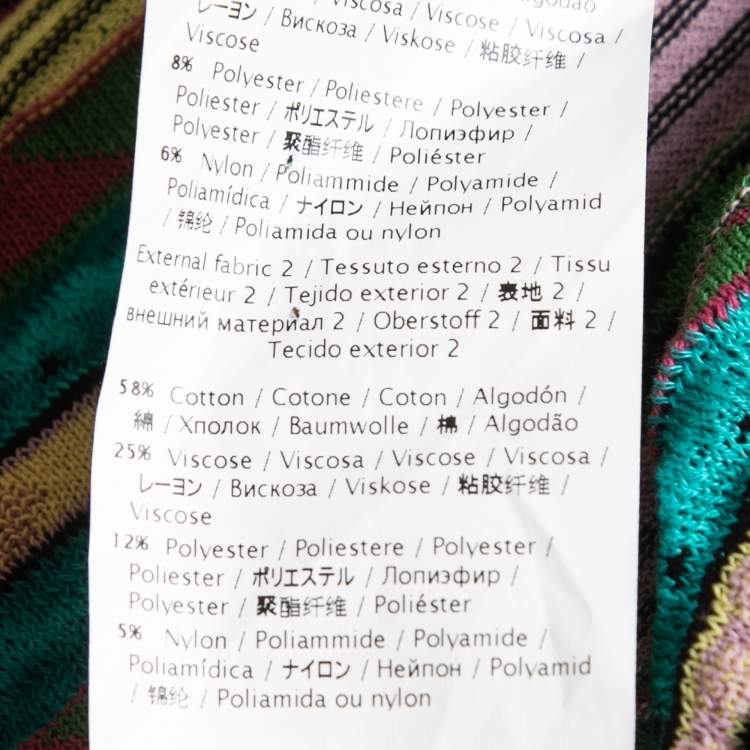 Algodão
Viscosa / Viscose / Viscosa /
レーヨン / Вискоза / Viskose / 粘胶纤维 /
Viscose
8% Polyester / Poliestere / Polyester /
Poliester / ポリエステル / Лопиэфир /
Polyester / 聚酯纤维 / Poliéster
6% Nylon / Poliammide / Polyamide /
Poliamídica / ナイロン / Нейпон / Polyamid
/ 锦纶 / Poliamida ou nylon
External fabric 2 / Tessuto esterno 2 / Tissu
extérieur 2 / Tejido exterior 2 / 表地 2 /
внешний материал 2 / Oberstoff 2 / 面料 2 /
Tecido exterior 2
58% Cotton / Cotone / Coton / Algodón /
綿 / Хполок / Baumwolle / 棉 / Algodão
25% Viscose / Viscosa / Viscose / Viscosa /
レーヨン / Вискоза / Viskose / 粘胶纤维 /
Viscose
12% Polyester / Poliestere / Polyester /
Poliester / ポリエステル / Лопиэфир /
Polyester / 聚酯纤维 / Poliéster
5% Nylon / Poliammide / Polyamide /
Poliamídica / ナイロン / Нейпон / Polyamid
/ 锦纶 / Poliamida ou nylon